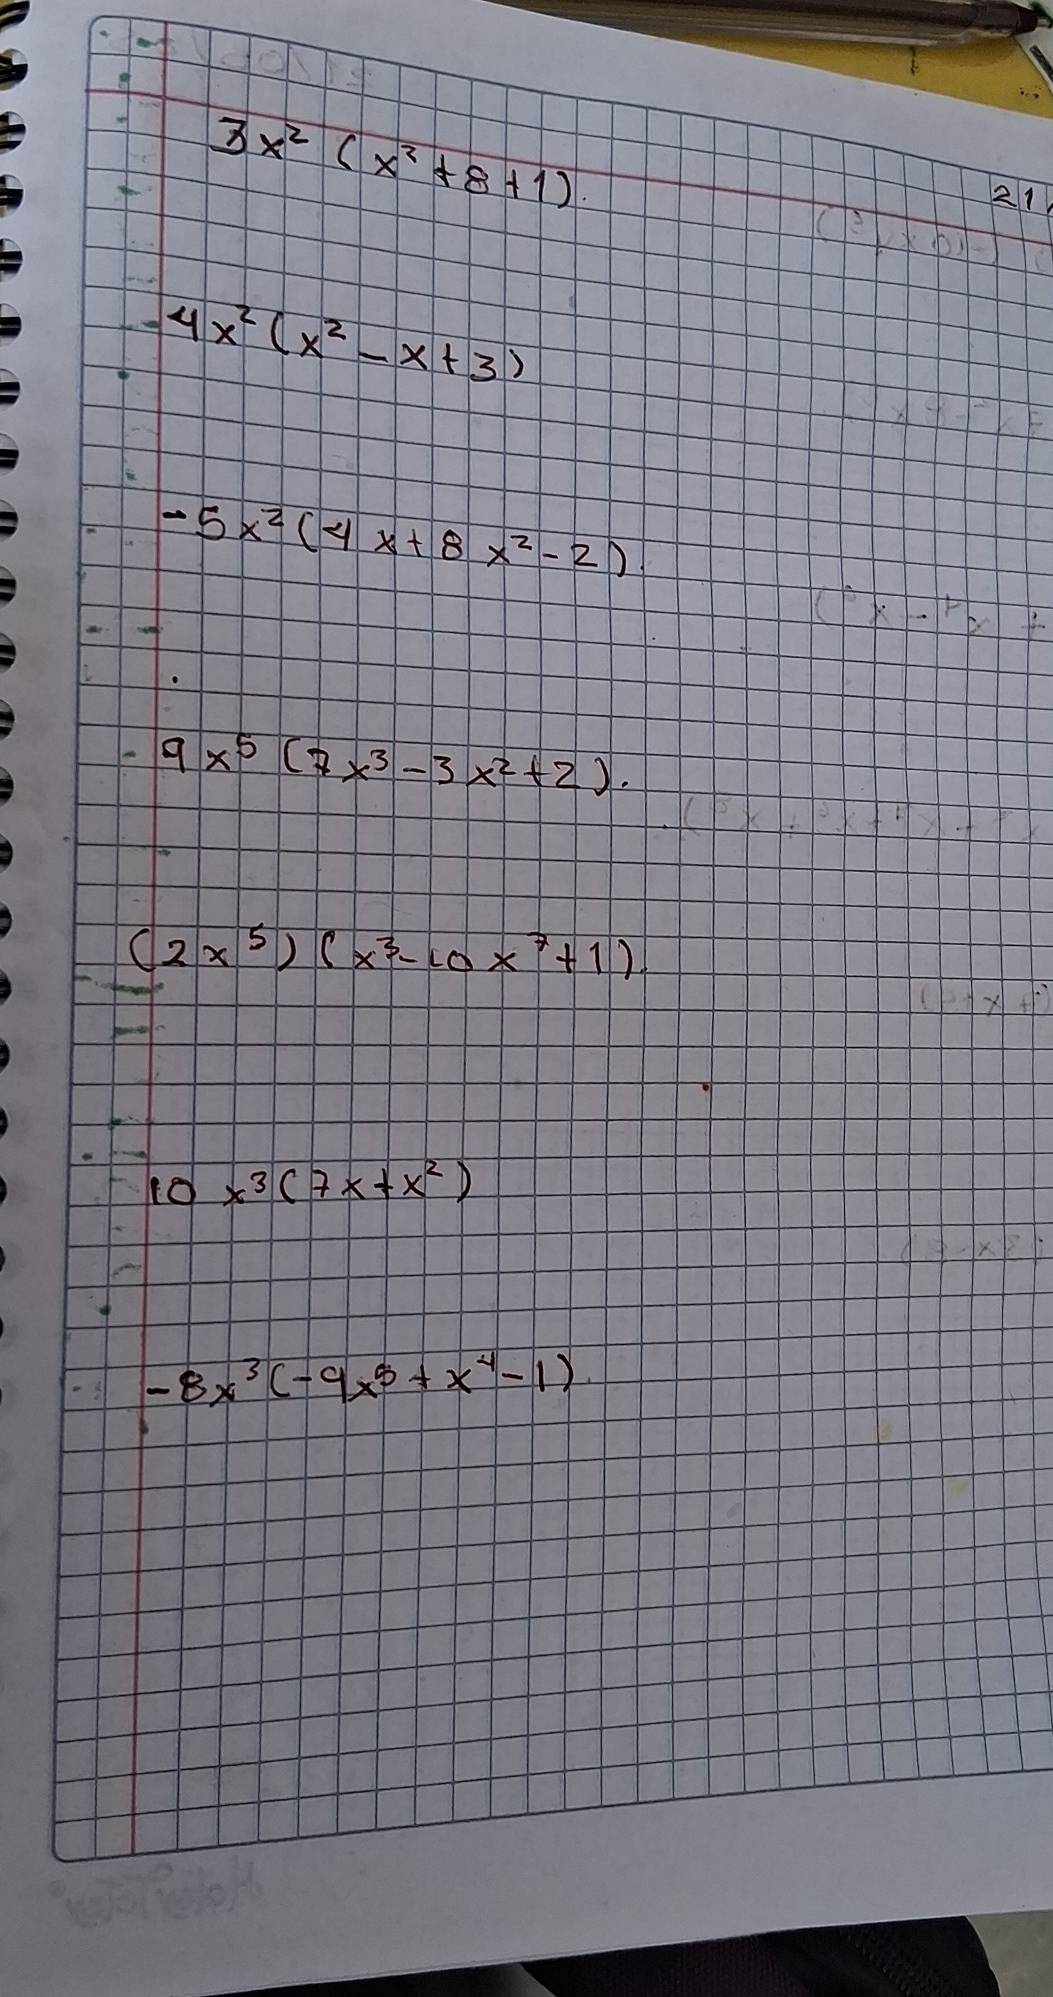 3x² (x³ + 8 + 1).
21
4x² (x² - x + 3)
-5x² (4x + 8x² - 2).
9x⁵ (7x³ - 3x² + 2).
(2x⁵) (x³ - 10x⁷ + 1).
10x³ (7x + x²)
-8x³ (-9x⁵ + x⁴ - 1)